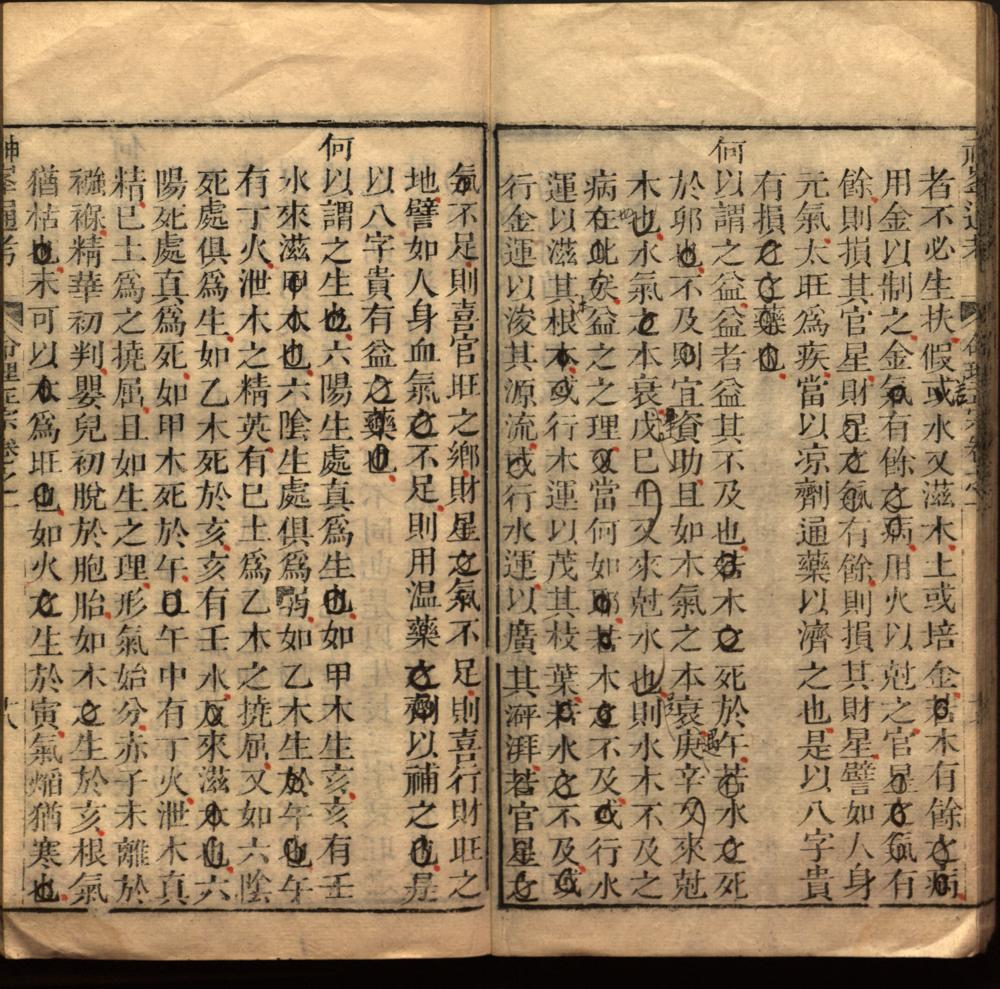 者不必生扶假或水又滋木土或培金若木有餘之病
用金以制之金氣有餘之病用火以尅之官星之氣有
餘則損其官星財星之氣有餘則損其財星譬如人身
元氣太旺爲疾當以凉劑通藥以濟之也是以八字貴
有損之之藥也
何以謂之益益者益其不及也若木之死於午若水之死
於卯也不及則宜資助且如木氣之本衰庚辛又來尅
木也水氣之本衰戊巳土又來尅水也則水木不及之
病在此矣益之之理又當何如耶若木之不及或行水
運以滋其根本或行木運以茂其枝葉若水之不及或
行金運以淩其源流或行水運以廣其湃湃若官星之
氣不足則喜官旺之鄕財星之氣不足則喜行財旺之
地譬如人身血氣之不足則用温藥之劑以補之也是
以八字貴有益之藥也
何以謂之生也六陽生處真爲生也如甲木生亥亥有壬
水來滋甲木也六陰生處俱爲弱如乙木生於午也午
有丁火泄木之精英有巳土爲乙木之撓屈又如六陰
死處俱爲生如乙木死於亥亥有壬水反來滋木也六
陽死處真爲死如甲木死於午也午中有丁火泄木真
精巳土爲之撓屈且如生之理形氣始分赤子未離於
襁褓精華初判嬰兒初脫於胞胎如木之生於亥根氣
猶枯也未可以木爲旺也如火之生於寅氣熖猶寒也
神峯通考
命理正宗卷之一
十八